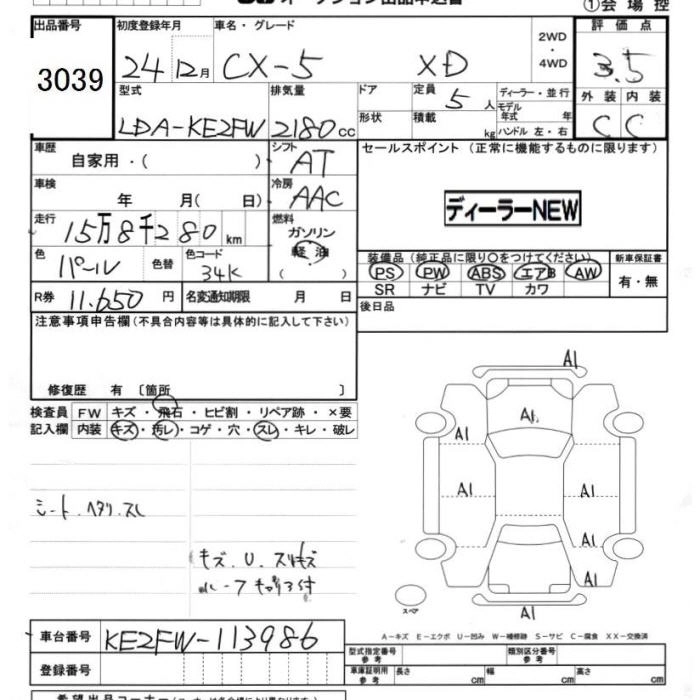 オークション出品申込書
①会場控
出品番号 初度登録年月 車名・グレード 2WD・4WD 評価点
3039 24 12月 CX-5 XD 3.5
型式 排気量 ドア 定員 5人 ディーラー・並行 外装 内装
LDA-KE2FW 2180cc 形状 積載 kg モデル年式 年 ハンドル 左・右 C C
車歴 自家用・( ) シフト AT セールスポイント (正常に機能するものに限ります)
車検 年 月( 日) 冷房 AAC
ディーラーNEW
走行 15万8千280km 燃料 ガソリン 軽油 ( )
色 パール 色替 色コード 34K
装備品 (純正品に限り○をつけてください) 新車保証書
PS PW ABS エアB AW 有・無
SR ナビ TV カワ
R券 11.650円 名変通知期限 月 日
後日品
注意事項申告欄 (不具合内容等は具体的に記入して下さい)
修復歴 有 〔箇所 〕
検査員 FW キズ・飛石・ヒビ割・リペア跡・×要
記入欄 内装 キズ・汚レ・コゲ・穴・スレ・キレ・破レ
A1
A1
A1
A1 A1
A1
A1
A1
シート.ヘタリ.スレ
キズ.U.スリキズ
スペア
A-キズ E-エクボ U-凹み W-補修跡 S-サビ C-腐食 XX-交換済
車台番号 KE2FW-113986
型式指定番号 参考 類別区分番号 参考
登録番号 車庫証明用 参考 長さ cm 幅 cm 高さ cm
希望出品コーナー